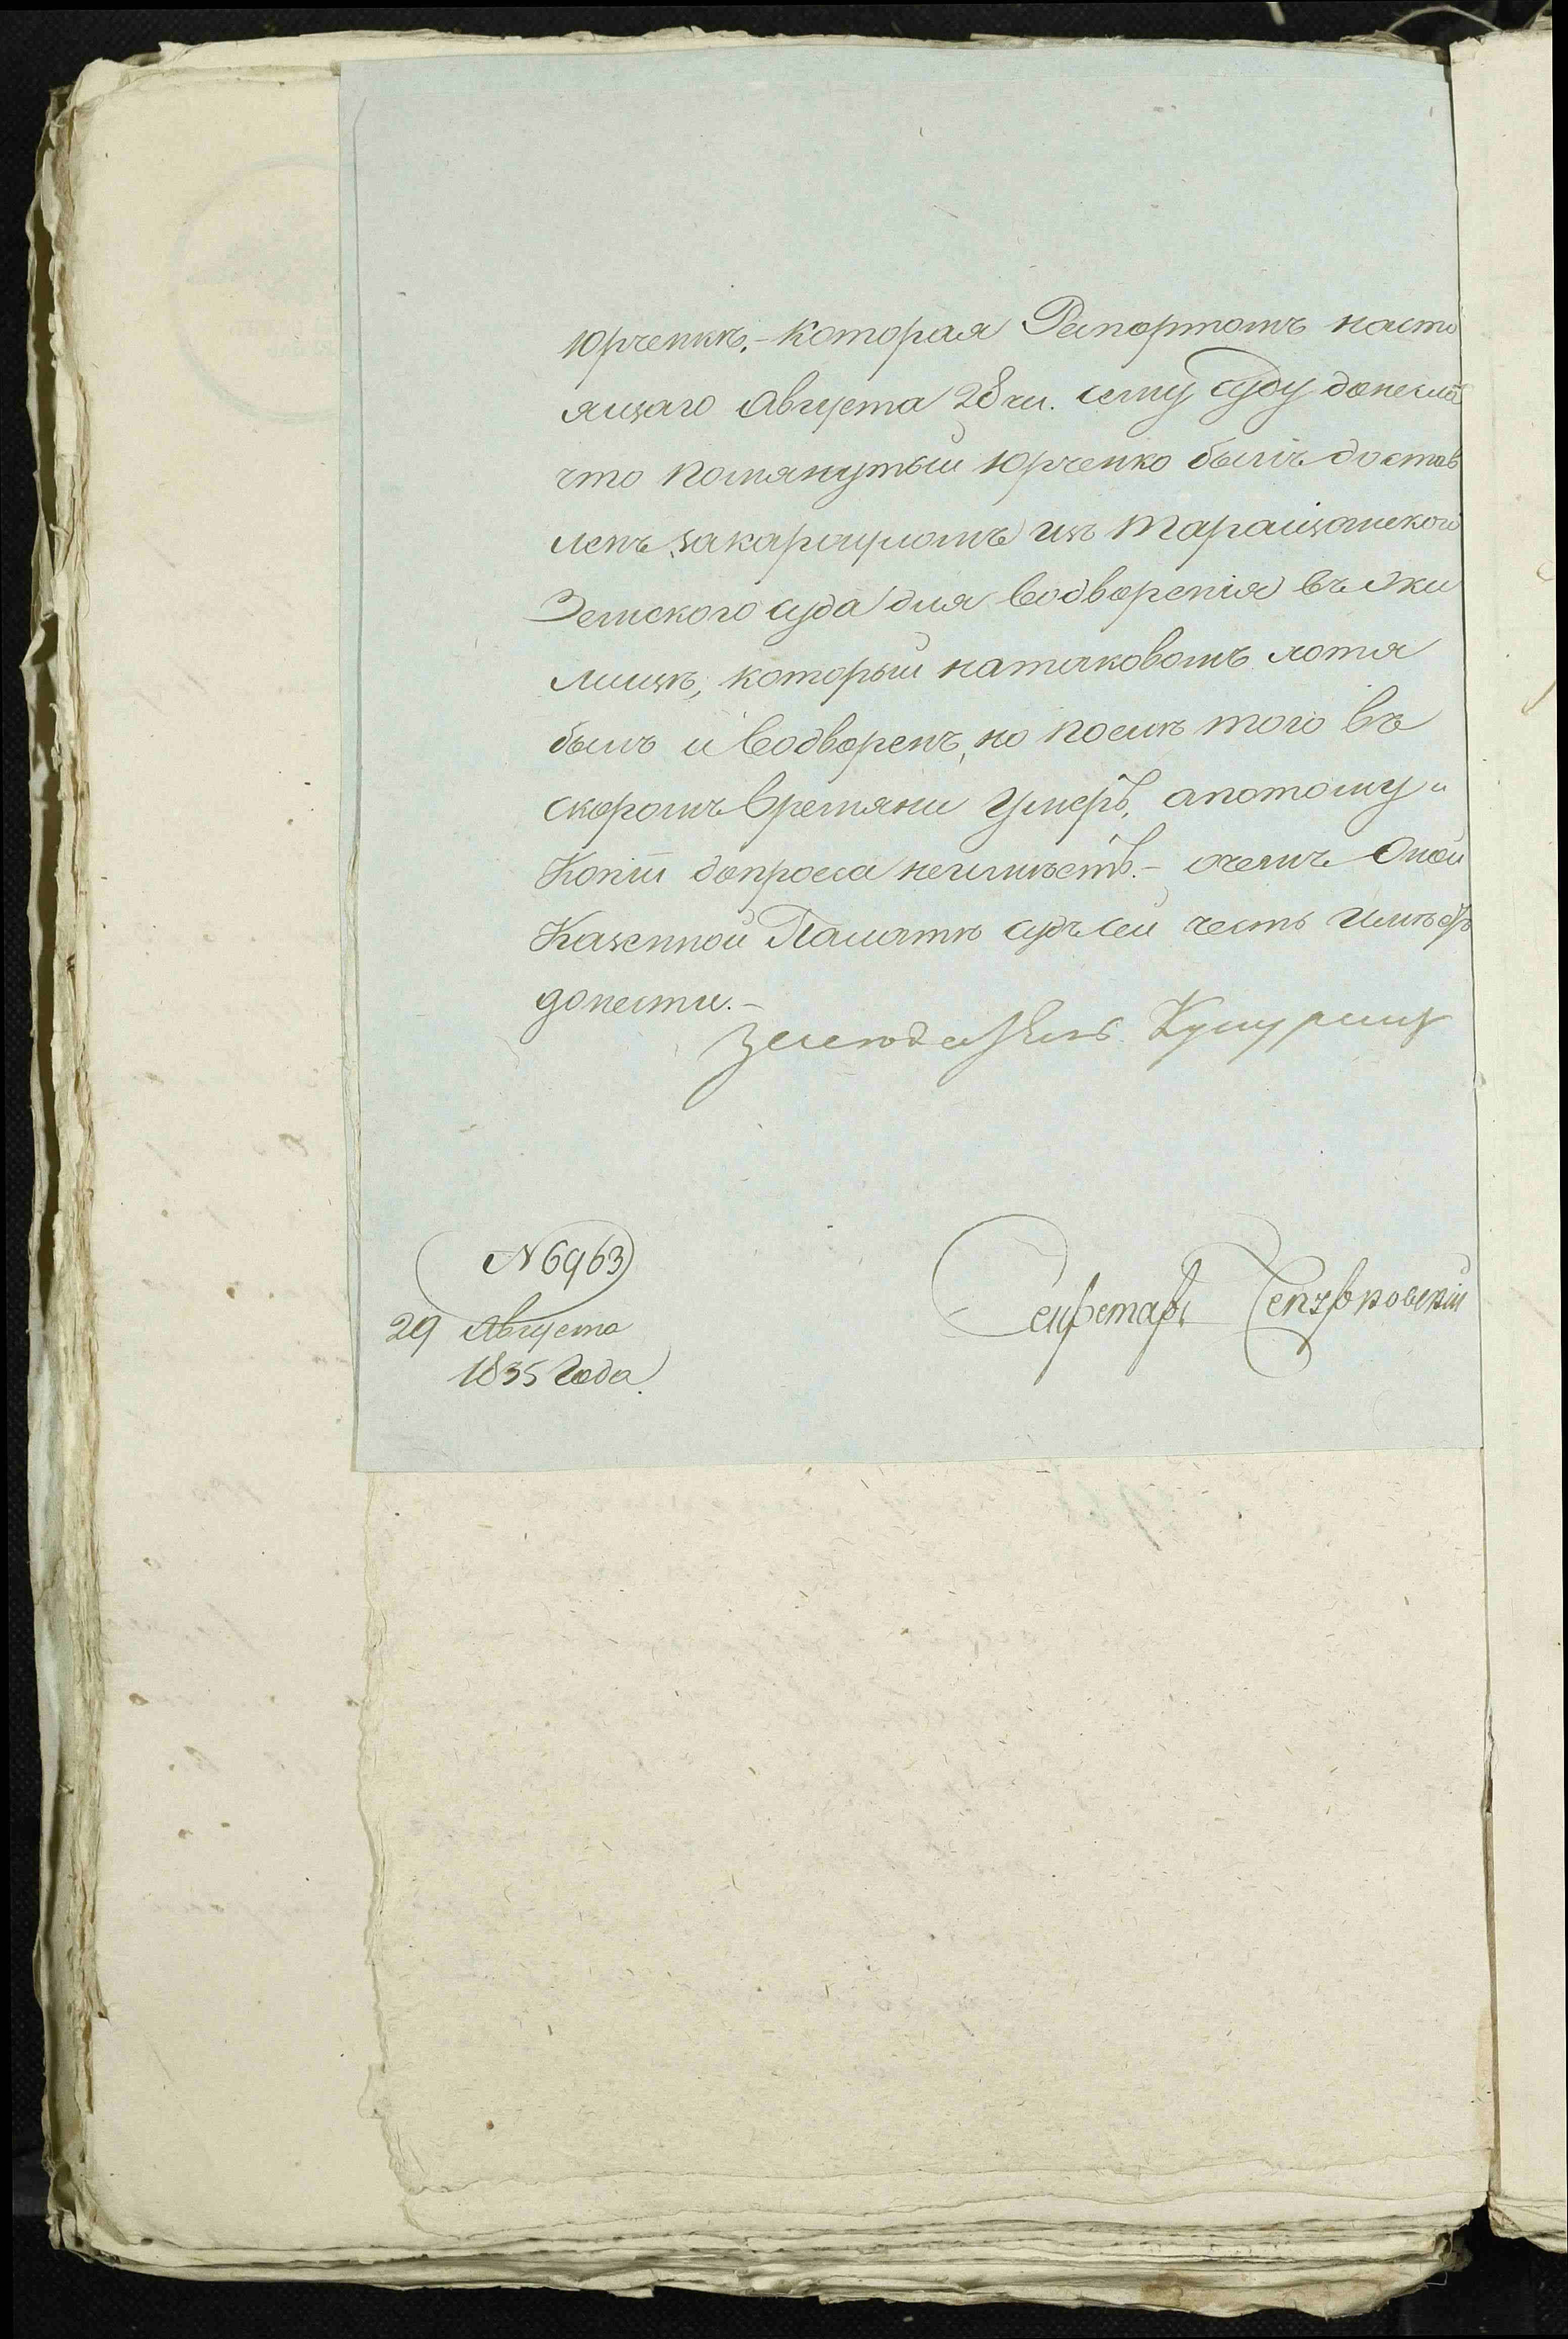 Юрченкѣ.- которая Рапортомъ насто
ящаго Августа 28 чи. сему суду донесла
что помянутый Юрченко былъ достав
ленъ закарауломъ изъ Таращанской
Земского суда для водворенія въ жи
лищѣ, который натаковомъ хотя
былъ и водворенъ, но послѣ того въ
скоромъ времяни умеръ, апотому и
Копіи допроса неимѣетъ.- очемъ Оной
Казенной Палатѣ судъ сей честь имѣетъ
донести.-
Засѣдатель
Секретарь
№ 6963
29 Августа
1835 Года.